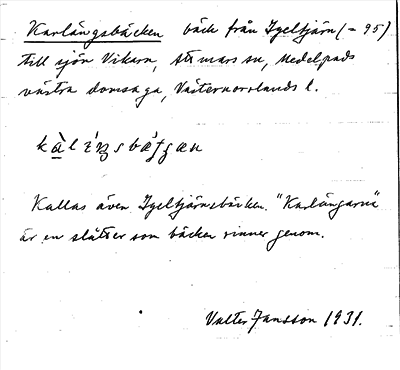 Karlångsbäcken bäck från Igeltjärn (= 95)
till sjön Vikarn, Attmars sn, Medelpads
västra domsaga, Västernorrlands l.
Kallas även Igeltjärnsbäcken. "Karlångarna"
är en slåtter som bäcken rinner genom.
Valter Jansson 1931.